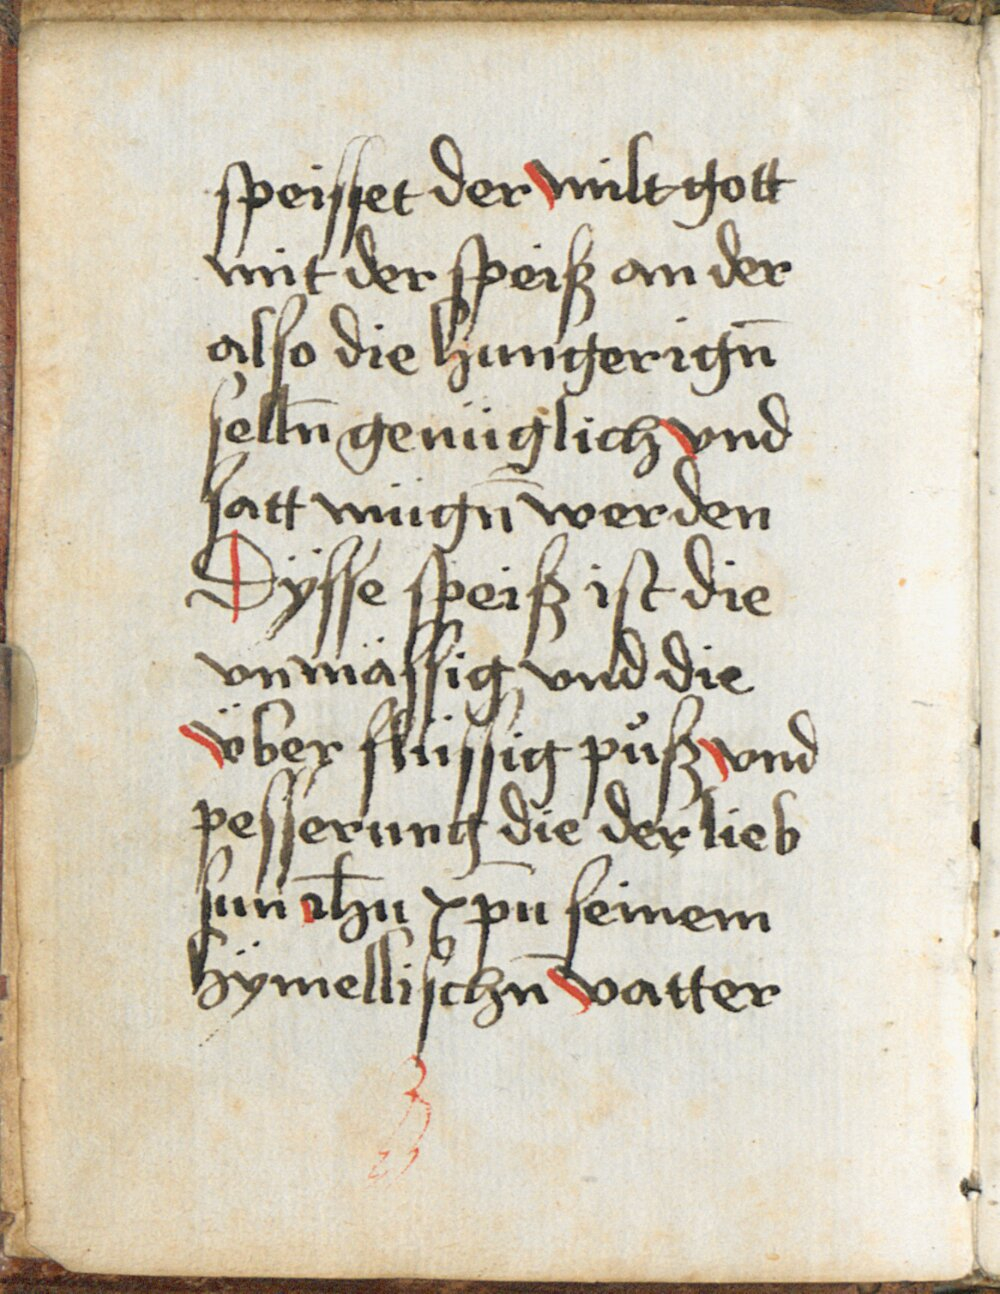 speisset der milt gott
mit der speiß an der
also die hungerign̄
selln̄ genüglich vnd
satt mügn̄ werden
Dÿsse speiß ist die
vnmässig vnd die
v̈ber flüssig půß vnd
pesserung die der lieb
sun ihu xpū seinem
hÿmellischn̄ vatter